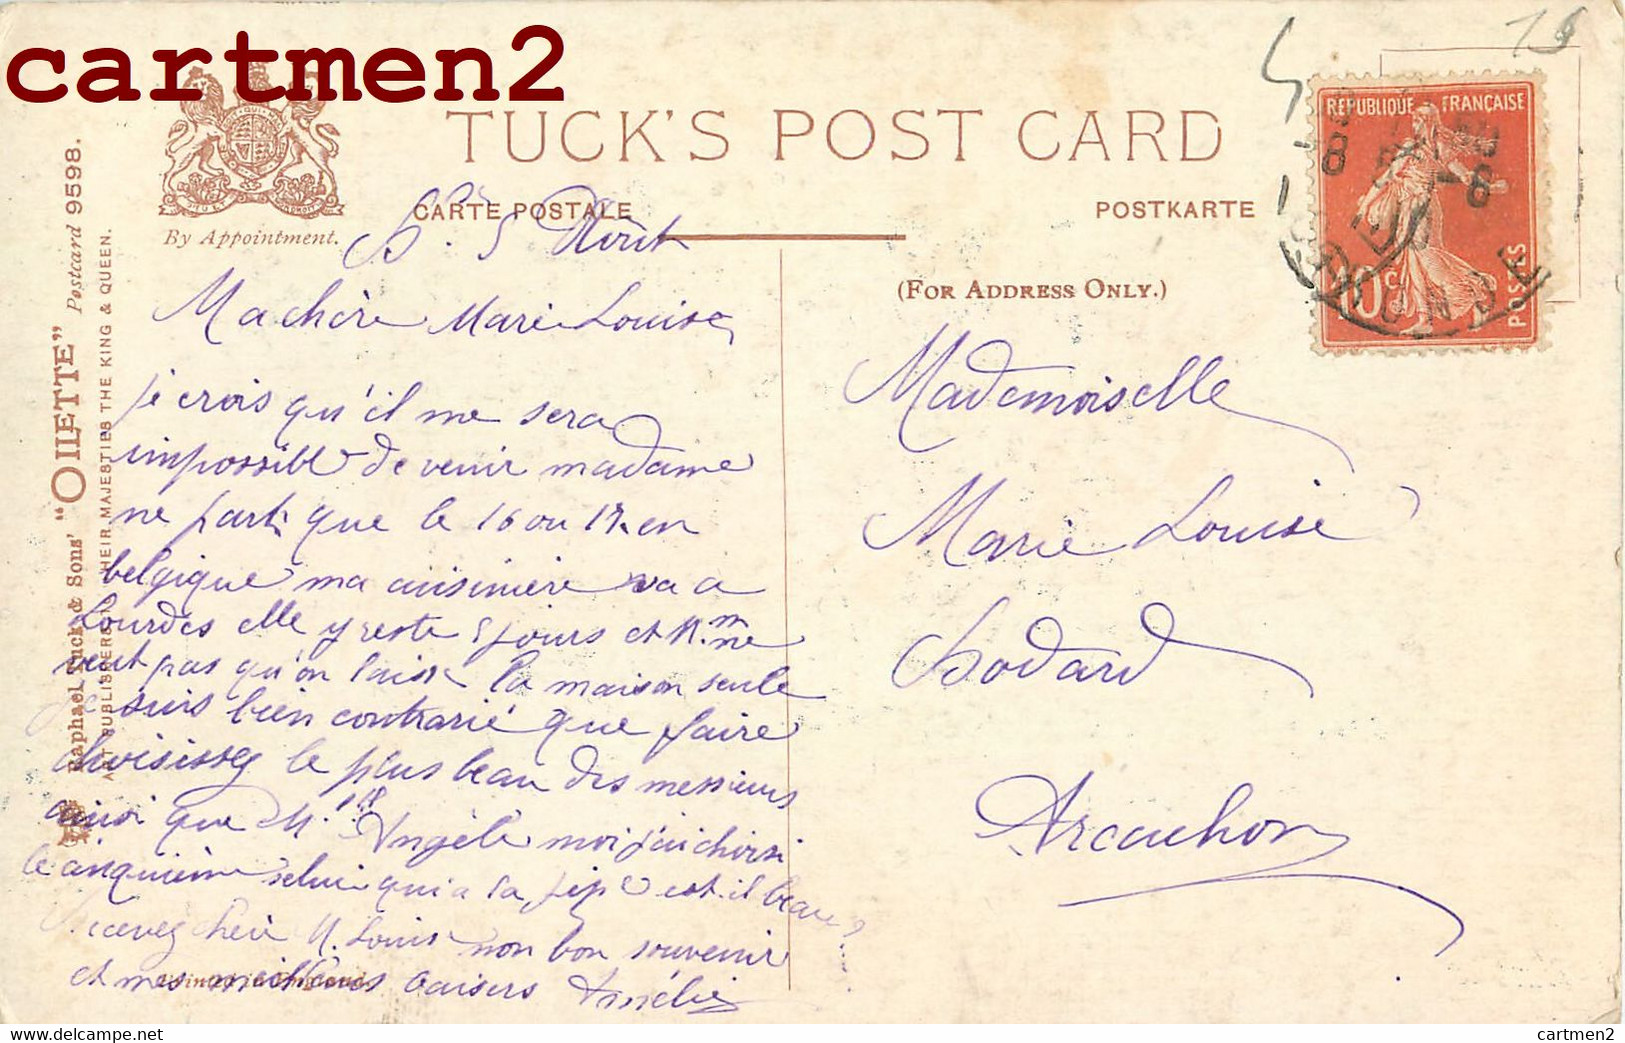 cartmen2
15
TUCK'S POST CARD
CARTE POSTALE
POSTKARTE
By Appointment.
(FOR ADDRESS ONLY.)
REPUBLIQUE FRANÇAISE
10c
POSTES
Raphael Tuck & Sons' "OILETTE" Postcard 9598.
ART PUBLISHERS TO THEIR MAJESTIES THE KING & QUEEN.
B. 5 Août
Ma chère Marie Louise
je crois qu'il me sera
impossible de venir madame
ne parti que le 16 ou 17 en
belgique ma cuisinière va a
Lourdes elle y reste 5 jours et Mme
veut pas qu'on laisse la maison seule
je suis bien contrarié que faire
choisissez le plus beau des messieurs
ainsi que Mlle Angèle moi j'ai choisi
le cinquième selui qui a la pipe est-il beau?
Recevez chère M. Louise mon bon souvenir
et mes meilleures baisers Amélie
Printed in England.
Mademoiselle
Marie Louise
Bodard
Arcachon
cartmen2